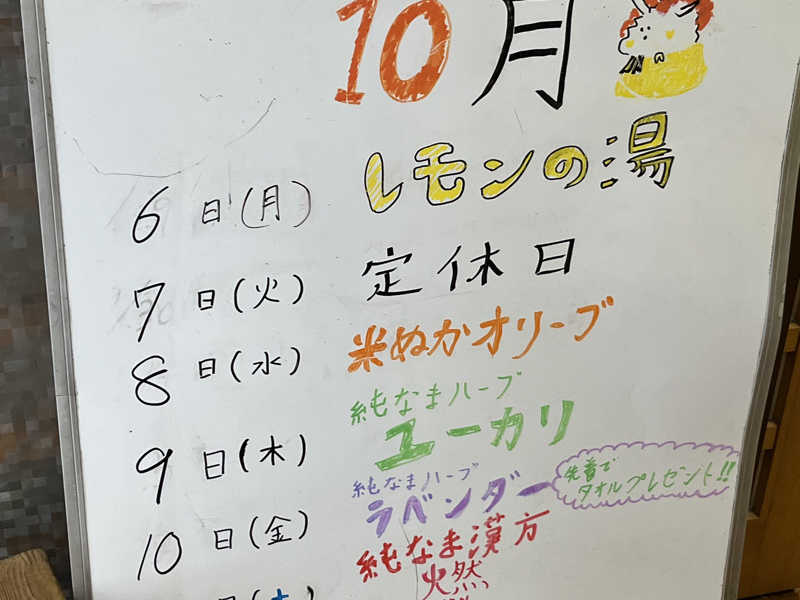 10月
6日(月) レモンの湯
7日(火) 定休日
8日(水) 米ぬかオリーブ
9日(木) 純なまハーブ
ユーカリ
10日(金) 純なまハーブ
ラベンダー
先着で
タオルプレゼント!!
純なま漢方